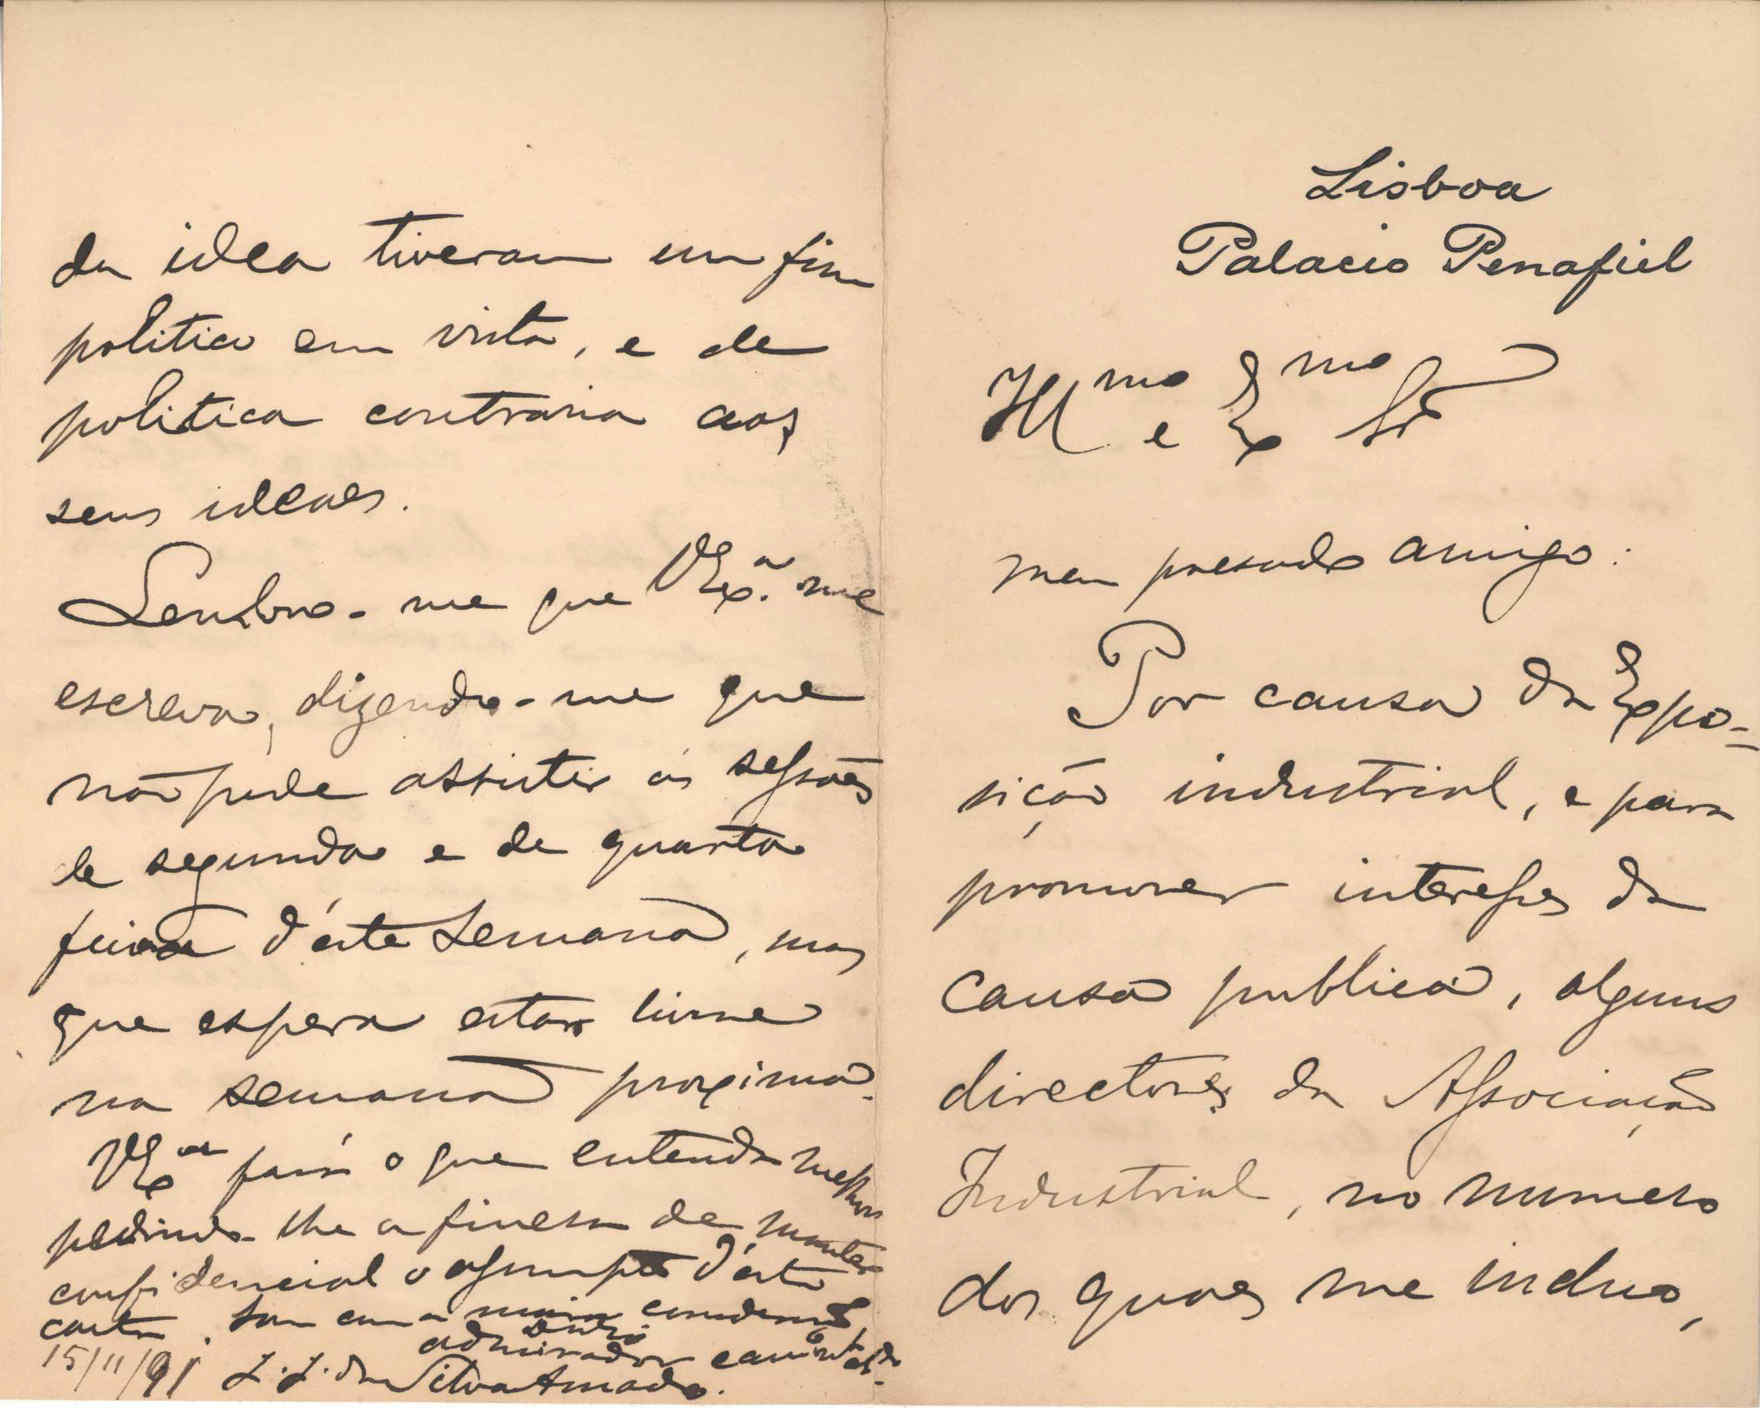 Lisboa
Palacio Penafiel
Ill.mo e Ex.mo Sr
meu presado amigo:
Por causa da Expo=
sição industrial, e para
promover interesses da
causa publica, alguns
directores da Associação
Industrial, no numero
dos quaes me incluo,
da idea tiveram um fim
politico em vista, e de
politica contraria aos
seus ideaes.
Lembro-me que VEx.a me
escreva, dizendo-me que
não pude assistir ás sessões
de segunda e de quarta
feira d'esta semana, mas
que espera estar livre
na semana proxima.
VEx.a fará o que entenda melhor
pedindo-lhe a fineza de manter
confidencial o assumpto d'esta
carta. Sou com a maior consideração
admirador
15/11/91 J. J. da Silva Amado.